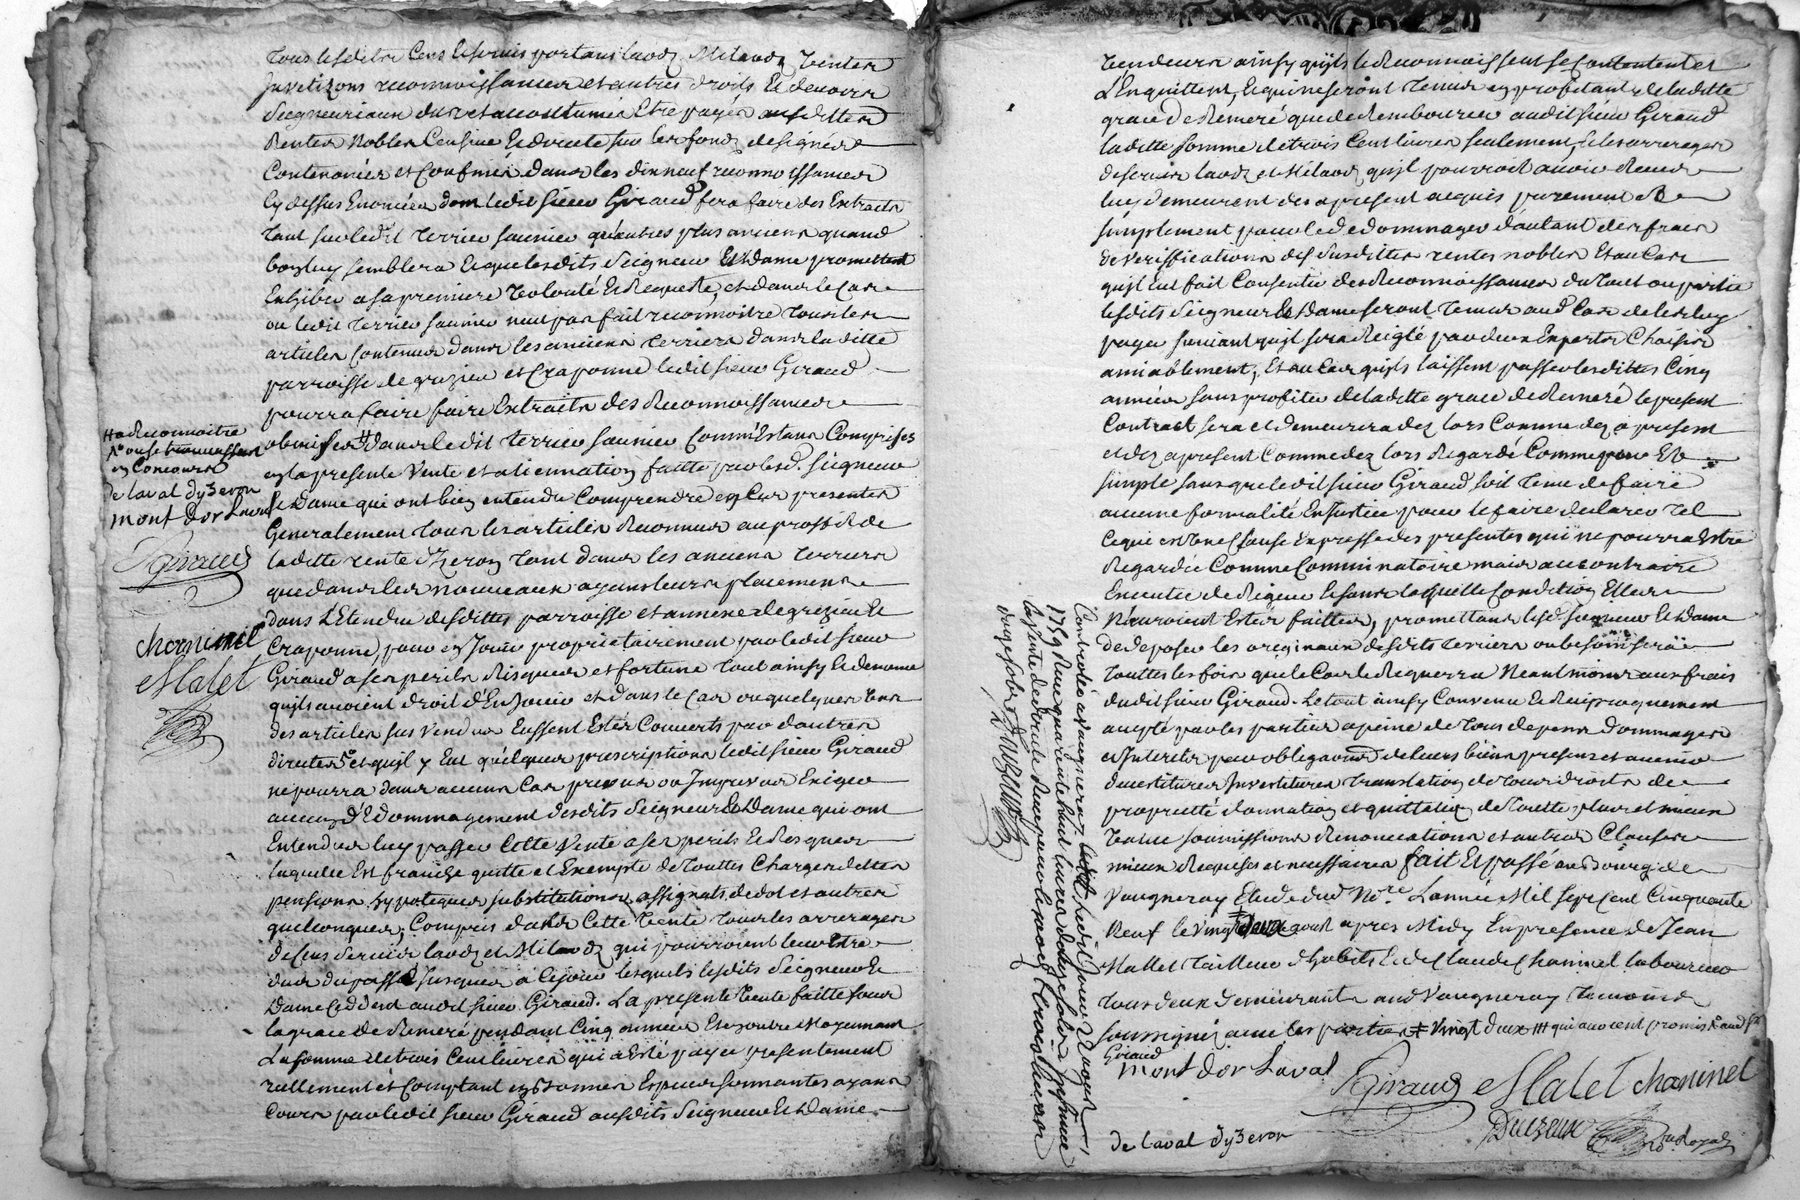 tous lesdits Cens et servis portant laods Milaods Ventes
Investizons reconnoissances et autres droits et devoirs
Seigneuriaux dus et accoustumés Etre payés ausdittes
Rentes Nobles Censive et directe sur les fonds designés
Contenoncés et Confinés dans les dixneuf reconnoissances
Cy dessus Enoncées dont ledit sieur Giraud fera faire des Extraits
tant sur ledit terrier saunier qu'autres plus anciens quand
bon luy semblera et que lesdits Seigneur Et Dame promettent
Exhiber a sa premiere Volonté et Requeste, et dans le Cas
ou ledit terrier saunier n'eut pas fait reconnoitre tous les
articles Contenus dans les anciens terriers dans laditte
parroisse de grezieu et Craponne ledit sieur Giraud
pourra faire faire Extraits des Reconnoissances
obmises # dans ledit terrier saunier Comm'Estans Comprises
en la presente Vente et alienation faitte par lesd. Seigneur
Et Dame qui ont bien entendu Comprendre en Ces presentes
Generalement tous les articles Reconnus au proffit de
laditte rente d'Yzeron tant dans les anciens terriers
que dans les nouveaux ayans leurs placements
dans l'Etendue desdittes parroisse et annexe de grezieu Et
Craponne, pour en Jouir propriétairement par ledit sieur
Giraud a ses perils Risques et fortune tout ainsy et de meme
qu'ils avoient droit d'En Jouir et dans le Cas ou quelques Uns
des articles sus Vendus Eussent Estés Couverts par d'autres
directes et qu'il y Eut quelques prescriptions ledit sieur Giraud
ne pourra dans aucuns Cas prevus ou Imprevus Exiger
aucun dÉdommagement desdits Seigneur Et Dame qui ont
Entendus luy passer Cette Vente a ses perils et Risques
laquelle Est franche quitte et Exempte de touttes Charges dettes
pensions hypoteques substitutions assignats de dot et autres
quelconques; Compris dans Cette Vente tous les arrerages
de Cens servis laods et Milaods qui pourroient leur Etre
dus du passé Jusques a Ce jour lesquels lesdits Seigneur Et
Dame Cedent audit sieur Giraud. La presente Vente faitte sous
la grace de Remeré pendant Cinq années Et outre Moyennant
La somme de trois Cent livres qui a Esté payée presentement
réellement et Comptant en Bonnes Especes sonnantes ayans
Cours par ledit sieur Giraud ausdits Seigneur Et Dame
# a Reconnoitre
en Concours
de laval dyzeron
mont dor Laval
Giraud
chaninel
Malet
Vendeurs ainsy qu'ils le Reconnoissent se Contentent et
L'En quittent, Et qui ne seront tenus en profitant de laditte
grace de Remeré que de Rembourser audit sieur Giraud
laditte somme de trois Cent livres seulement, et les arrerages
de servis laods et Milaods qu'il pourroit avoir Reçus
luy demeurent des a present acquis purement et
simplement pour le dedommager d'autant des frais
de Veriffications des susdittes rentes nobles Et au Cas
qu'il Eut fait Consentir des Reconnoissances du tout ou partie
lesdits Seigneur Et Dame seront tenus aud. Cas de les luy
payer suivant qu'il sera Reiglé par deux Experts Choisis
amiablement, Et au Cas qu'ils laissent passer lesdittes Cinq
années sans profiter de laditte grace de Remeré le present
Contract sera et demeurera des lors Comme des a present
et dez a present Comme dez lors Regardé Comme pur Et
simple sans que ledit sieur Giraud soit tenu de faire
aucune formalité En Justice pour le faire declarer tel
Ce qui est Une Clause Expresse des presentes qui ne pourra Estre
Regardée Comme Comminatoire mais au contraire
Executée de Rigueur Et sans laquelle Condition Elles
N'auroient Estés faittes, promettans lesd. Seigneur Et Dame
de deposer les originaux desdits terriers ou besoin sera
touttes les fois que le Cas le Requerra Neantmoins aux frais
dudit sieur Giraud. Le tout ainsy Convenu Et Reciproquement
accepté par les parties a peine de tous depens Dommages
et Interets par obligaons de leurs biens presens et avenir
devestitures Investitures translation de tous droits de
proprietté donnation et quittation de toutte plus et mieux
Value soumissions Renonciations et autres Clauses
mieux Requises et necessaires fait Et passé au Bourg de
Vaugneray Etude dud. No.re L'année Mil sept Cent Cinquante
Neuf le Vingt # aoust apres Midy En presence de Jean
Mallet tailleur d'habits Et de Claude Chaninel laboureur
tous deux demeurants aud. Vaugneray temoins
soussignés avec les parties # Vingt deux
Giraud
mont dor Laval
Giraud Malet chaninel
Duczeux
de laval dyzeron
Controlé a Vaugneray ledit Jour 22 aoust
1759 Reçu quarante huit